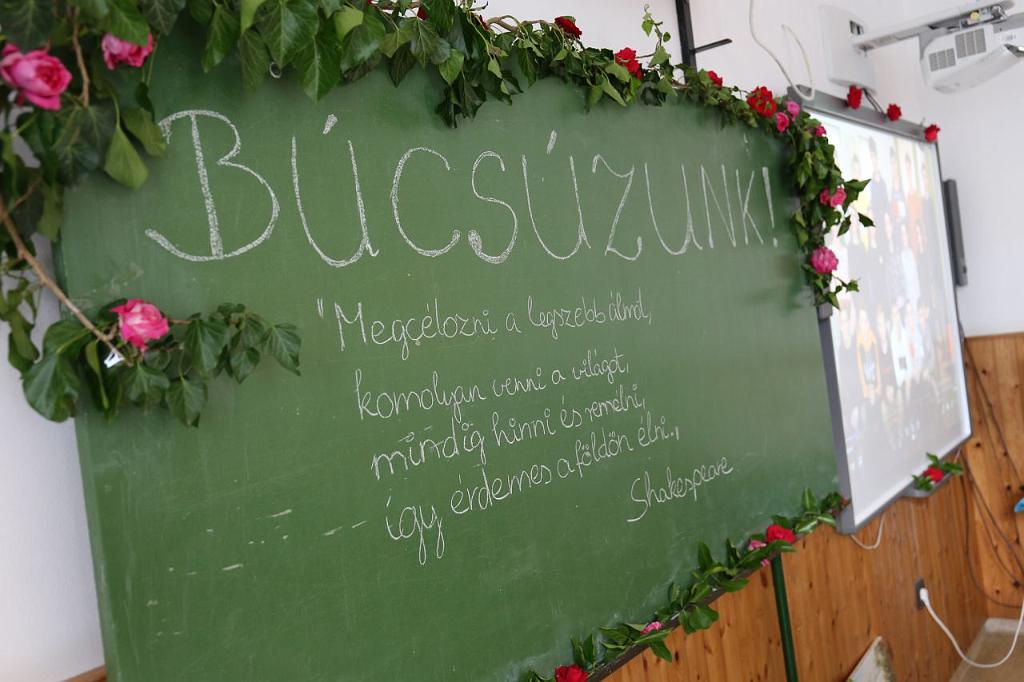 BÚCSÚZUNK!
"Megcélozni a legszebb álmot,
komolyan venni a világot,
mindig hinni és remélni,
így érdemes a földön élni.„
Shakespeare